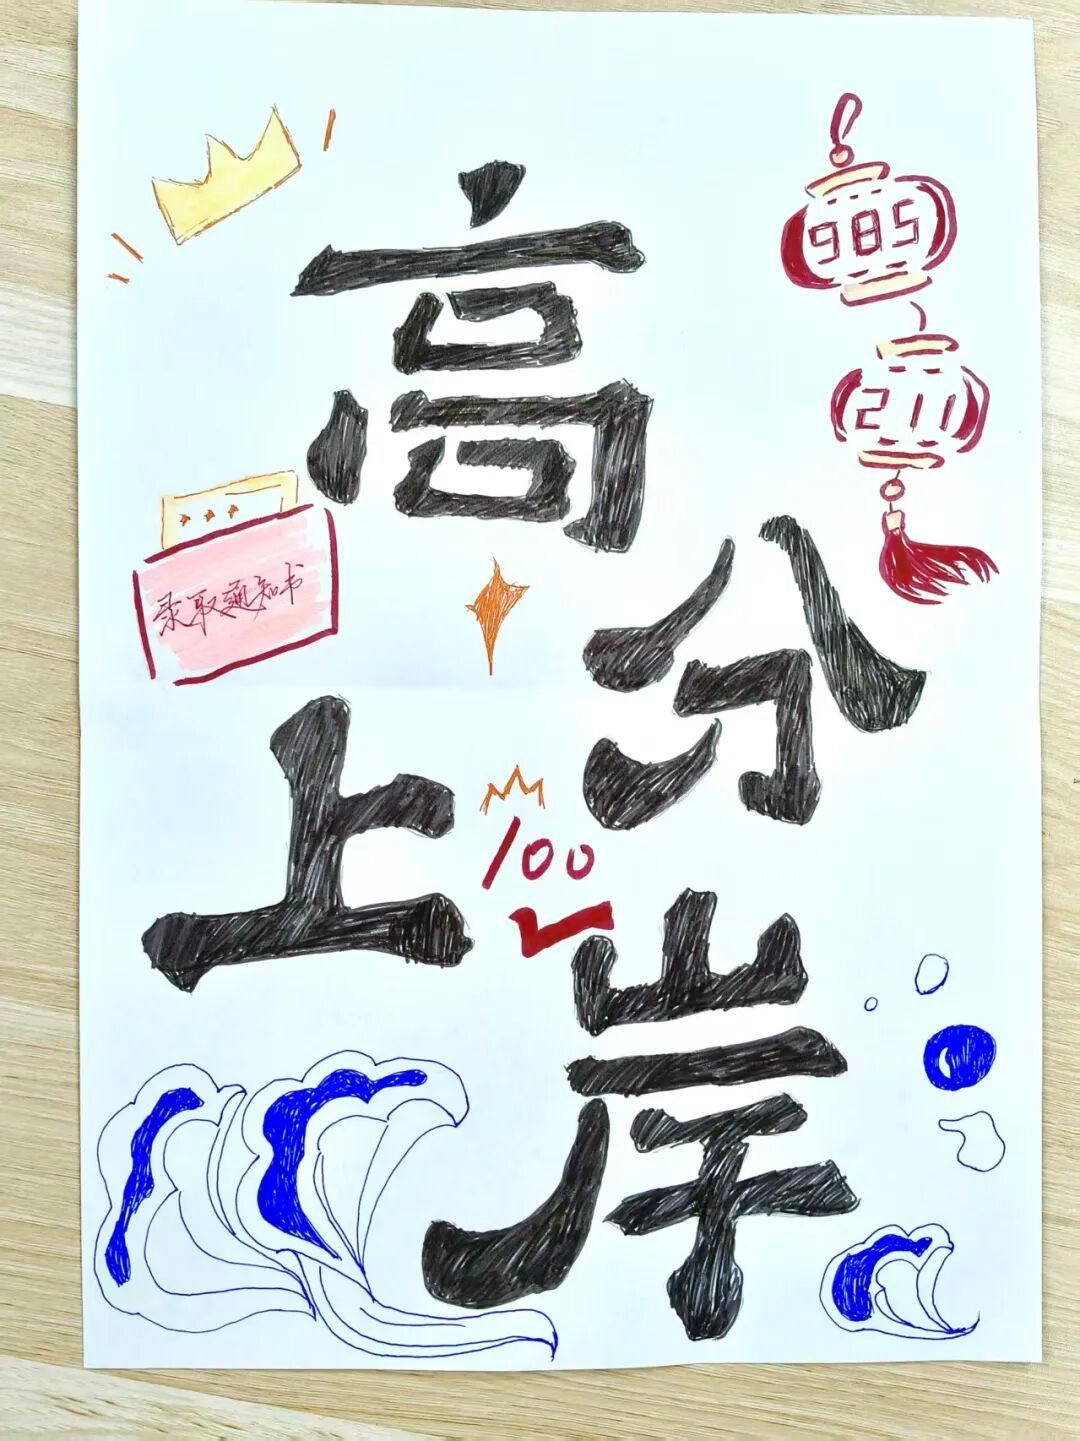 985
高
211
录取通知书
分
上
100
岸